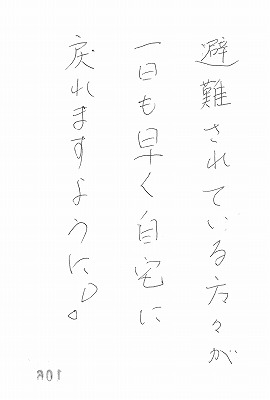 避難されている方々が
一日も早く自宅に
戻れますように。